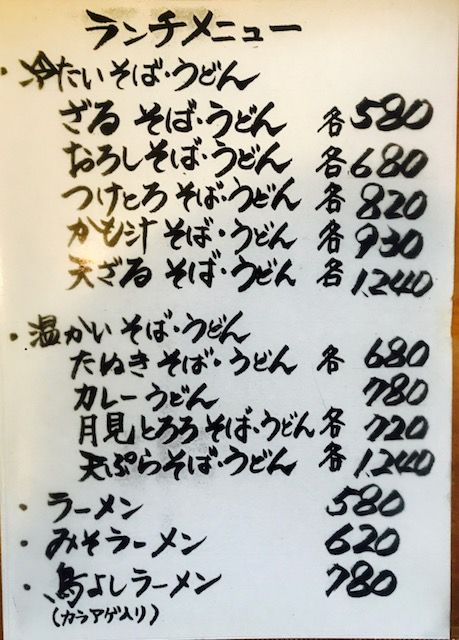 ランチメニュー
・冷たいそば・うどん
ざる そば・うどん 各580
おろしそば・うどん 各680
つけとろ そば・うどん 各820
かも汁 そば・うどん 各930
天ざる そば・うどん 各1,240
・温かいそば・うどん
たぬき そば・うどん 各 680
カレーうどん 780
月見とろろ そば・うどん 各 720
天ぷらそば・うどん 各1,240
・ラーメン 580
・みそラーメン 620
・鳥よしラーメン 780
(カラアゲ入り)